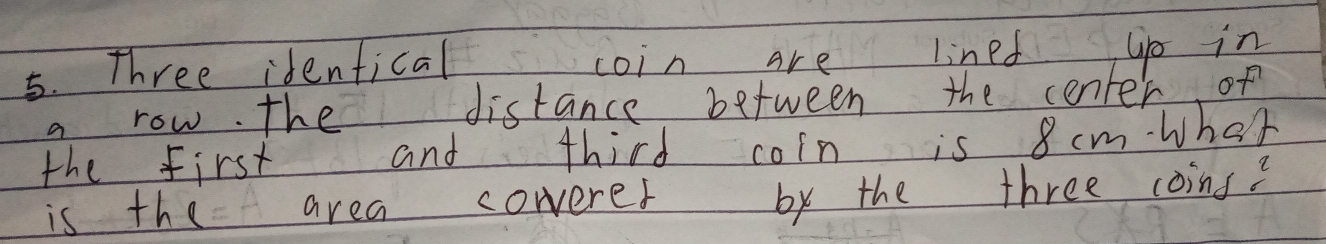 5. Three identical coin are lined up in
a row. the distance between the center of
the first and third coin is 8cm. What
is the area covered by the three coins?